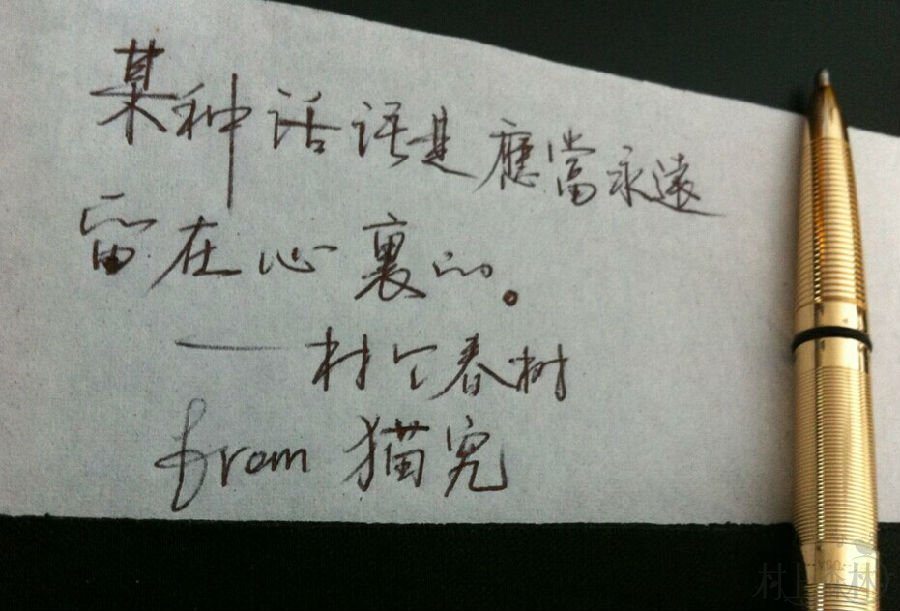 某种话语是應當永遠
留在心裏的。
——村上春树
from 猫兜